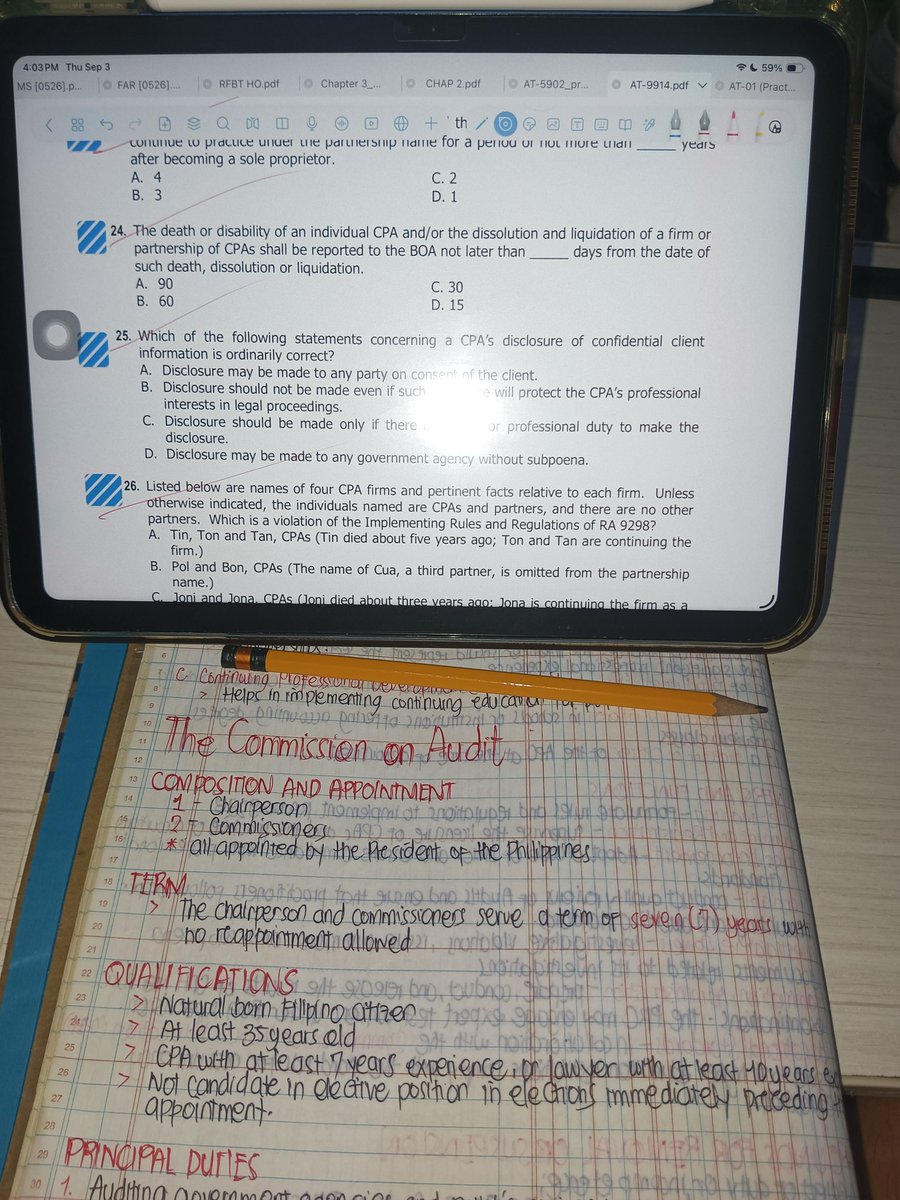 4:03 PM Thu Sep 3
59%
MS [0526].p...
FAR [0526]....
RFBT HO.pdf
Chapter 3_...
CHAP 2.pdf
AT-5902_pr...
AT-9914.pdf
AT-01 (Pract...
th
continue to practice under the partnership name for a period of not more than ______ years
after becoming a sole proprietor.
A. 4
C. 2
B. 3
D. 1
24. The death or disability of an individual CPA and/or the dissolution and liquidation of a firm or
partnership of CPAs shall be reported to the BOA not later than ______ days from the date of
such death, dissolution or liquidation.
A. 90
C. 30
B. 60
D. 15
25. Which of the following statements concerning a CPA's disclosure of confidential client
information is ordinarily correct?
A. Disclosure may be made to any party on consent of the client.
B. Disclosure should not be made even if such will protect the CPA's professional
interests in legal proceedings.
C. Disclosure should be made only if there or professional duty to make the
disclosure.
D. Disclosure may be made to any government agency without subpoena.
26. Listed below are names of four CPA firms and pertinent facts relative to each firm. Unless
otherwise indicated, the individuals named are CPAs and partners, and there are no other
partners. Which is a violation of the Implementing Rules and Regulations of RA 9298?
A. Tin, Ton and Tan, CPAs (Tin died about five years ago; Ton and Tan are continuing the
firm.)
B. Pol and Bon, CPAs (The name of Cua, a third partner, is omitted from the partnership
name.)
C. Joni and Jona, CPAs (Joni died about three years ago; Jona is continuing the firm as a
6
7 C. Continuing Professional
8 > Helps in implementing continuing
9
10 The Commission on Audit
11
12
13 COMPOSITION AND APPOINTMENT
14 1 - Chairperson
15 2 - Commissioners
16 * all appointed by the President of the Philippines
17
18 TERM
19 > The chairperson and commissioners serve a term of seven (7) years with
20 no reappointment allowed
21
22 QUALIFICATIONS
23 > Natural born Filipino citizen
24 > At least 35 years old
25 > CPA with at least 7 years experience, or lawyer with at least 10 years
26 > Not candidate in elective position in elections immediately preceding
27 appointment.
28
29 PRINCIPAL DUTIES
30 1. Auditing government agencies